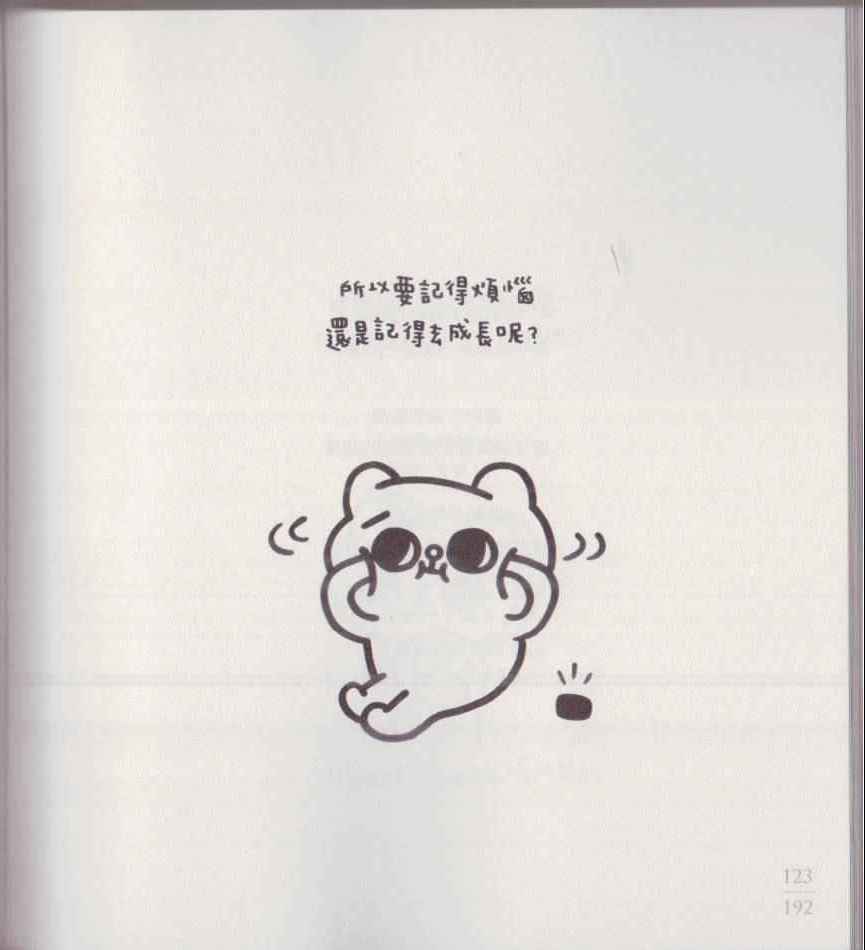 所以要記得煩惱
還是記得去成長呢?
123
192